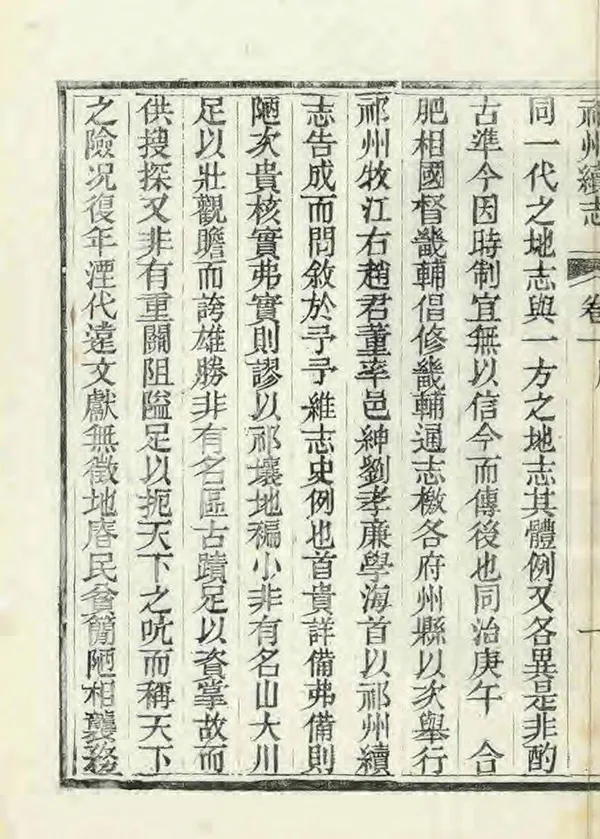 祁州續志 卷一
同一代之地志與一方之地志其體例又各異是非酌
古準今因時制宜無以信今而傳後也同治庚午 合
肥相國督畿輔倡修畿輔通志檄各府州縣以次舉行
祁州牧江右趙君董率邑紳劉孝廉學海首以祁州續
志告成而問敘於予予維志史例也首貴詳備弗備則
陋次貴核實弗實則謬以祁壤地褊小非有名山大川
足以壯觀瞻而誇雄勝非有名區古蹟足以資掌故而
供搜探又非有重關阻隘足以扼天下之吭而稱天下
之險况復年湮代遠文獻無徵地瘠民貧簡陋相襲務